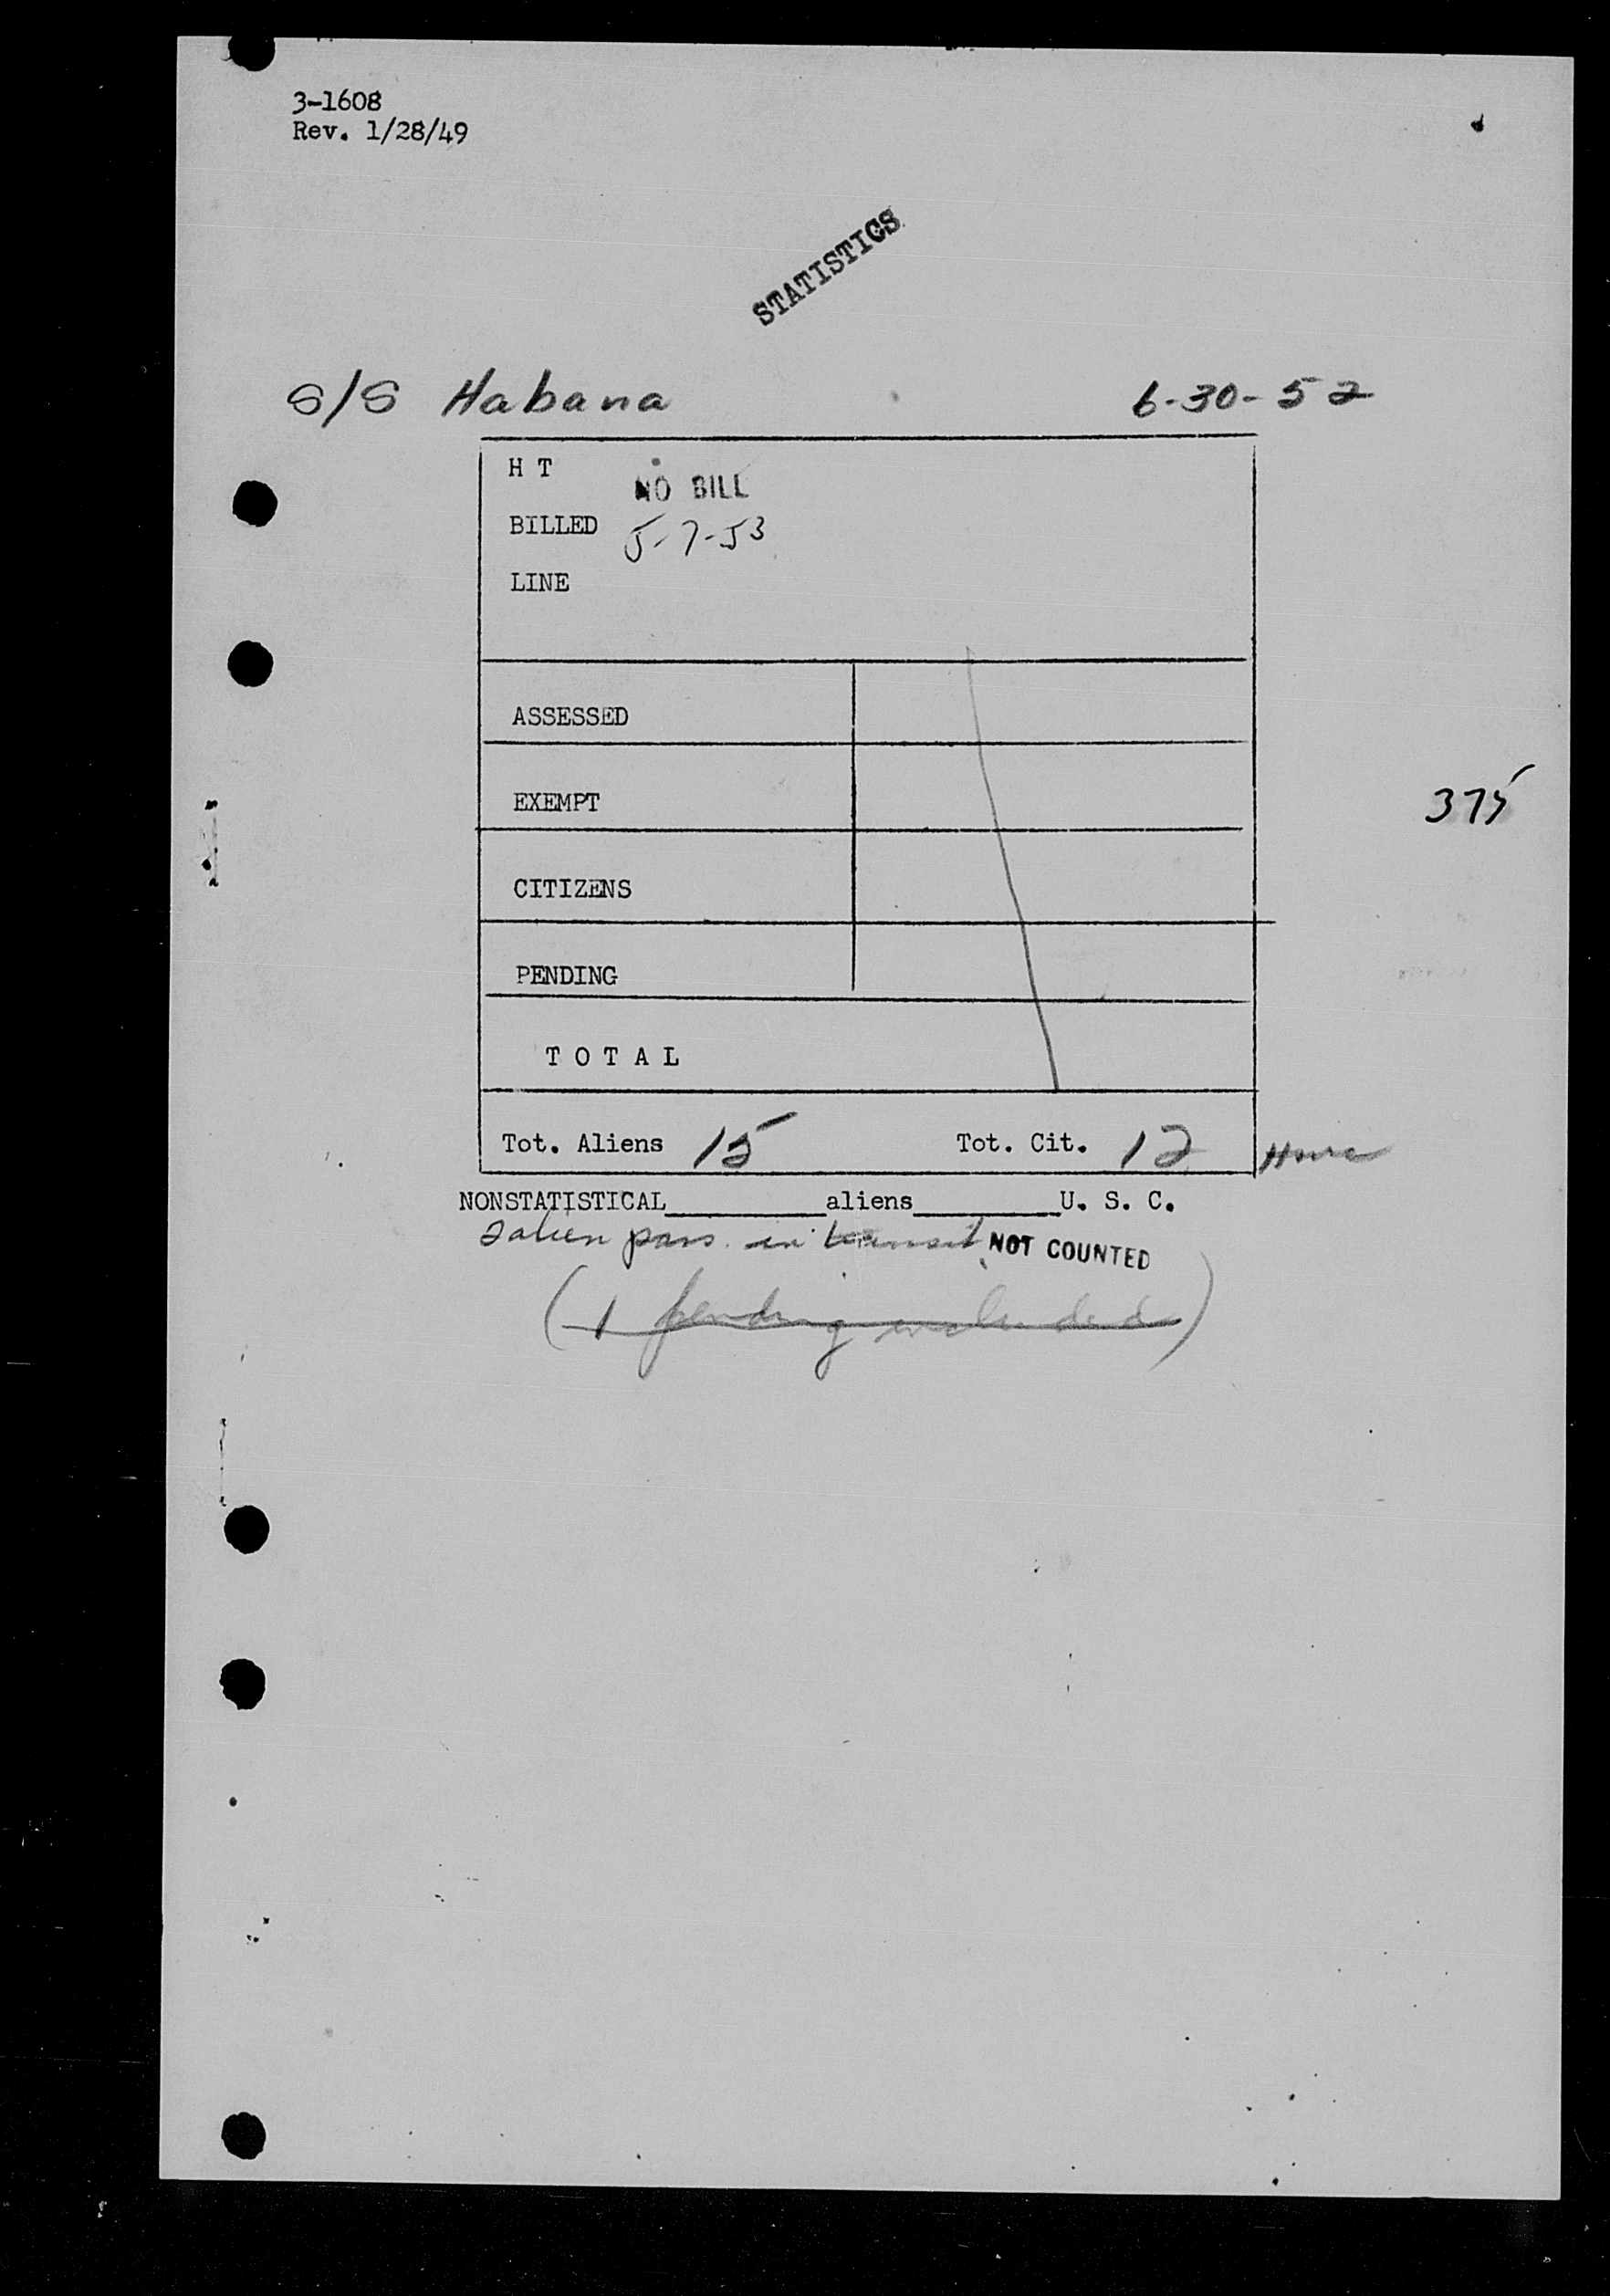 3-1608
Rev. 1/28/49
STATISTICS
S/S Habana 6-30-52
H T
NO BILL
BILLED 5-7-53
LINE
ASSESSED
EXEMPT
375
CITIZENS
PENDING
T O T A L
Tot. Aliens 15 Tot. Cit. 12
NONSTATISTICAL__________aliens_________U. S. C.
2 alien pass. in transit NOT COUNTED
(1 pending included)